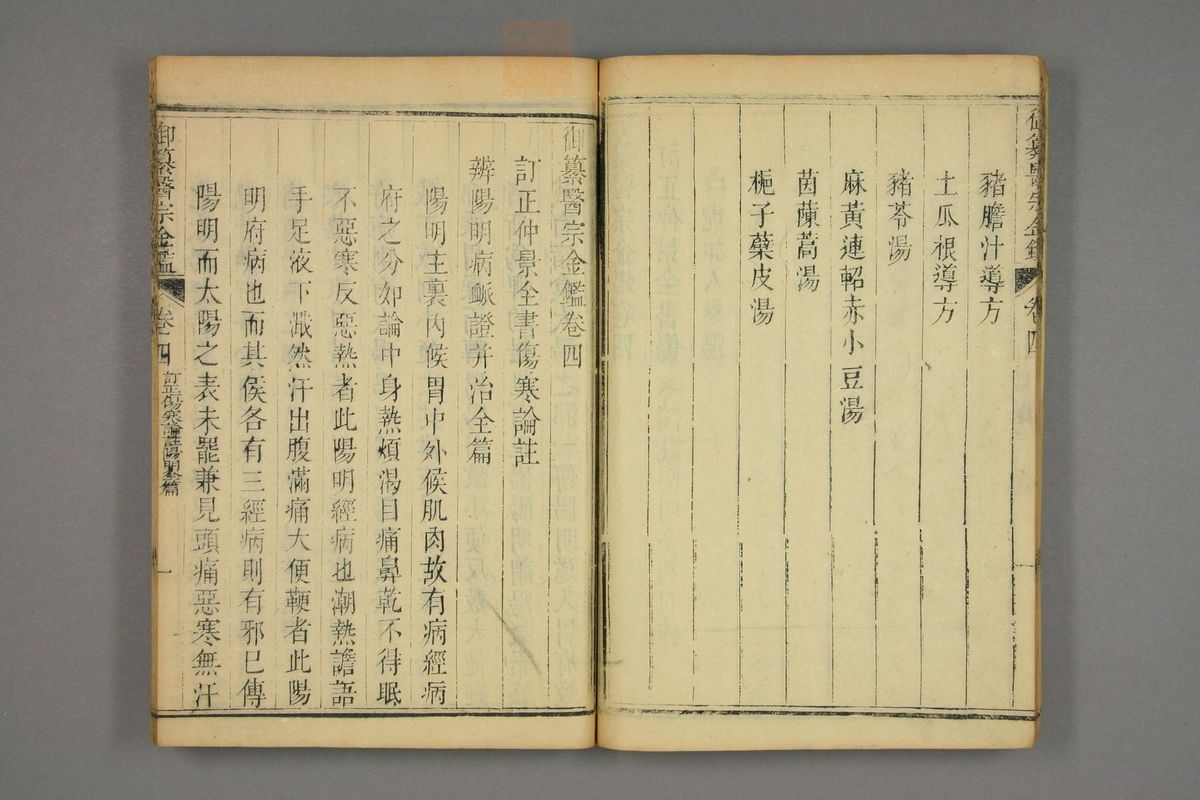 御纂醫宗金鑑 卷四
豬膽汁導方
土瓜根導方
豬苓湯
麻黃連軺赤小豆湯
茵蔯蒿湯
梔子蘗皮湯
御纂醫宗金鑑卷四
訂正仲景全書傷寒論註
辨陽明病脈證并治全篇
陽明主裏內候胃中外候肌肉故有病經病
府之分如論中身熱煩渴目痛鼻乾不得眠
不惡寒反惡熱者此陽明經病也潮熱譫語
手足濈下濈然汗出腹滿痛大便鞕者此陽
明府病也而其候各有三經病則有邪已傳
陽明而太陽之表未罷兼見頭痛惡寒無汗
御纂醫宗金鑑 卷四 訂正傷寒論註陽明全篇 一